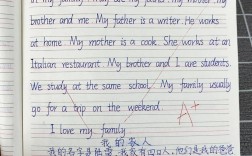 my family. They are my father, my mother, my
brother and me. My father is a writer. He works
at home. My mother is a cook. She works at an
Italian restaurant. My brother and I are students.
We study at the same school. My family usually
go for a trip on the weekend.
A+
I love my family.
我的家人
我的名字是 我家有四口人，他们是我的爸爸